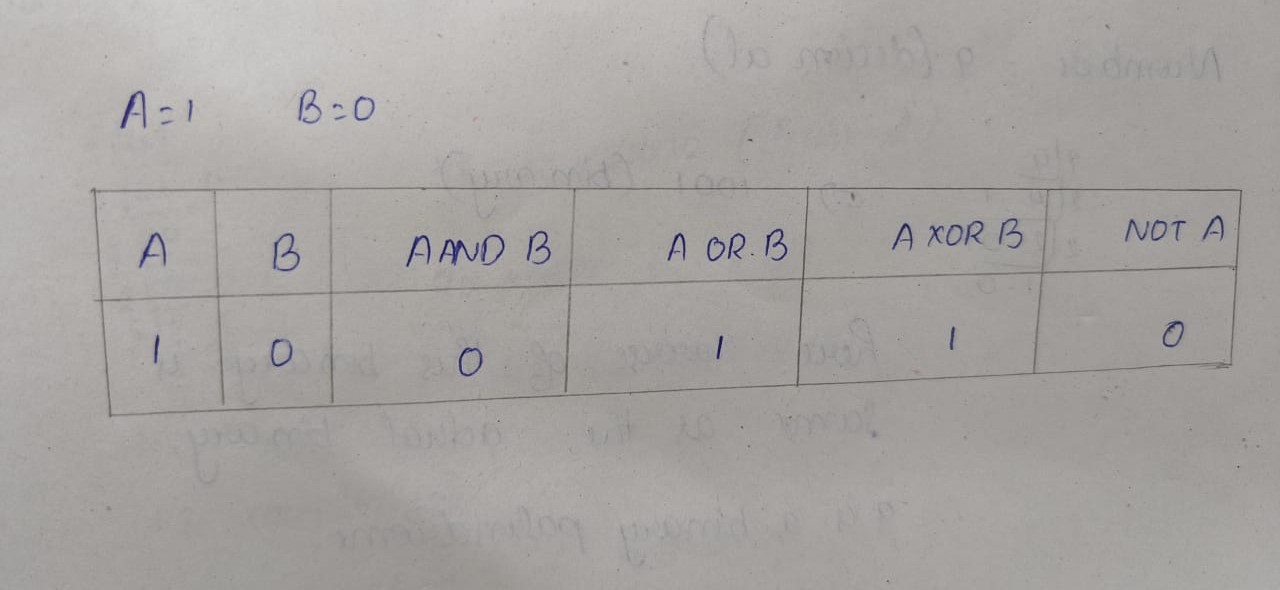 A=1 B=0
A B A AND B A OR B A XOR B NOT A
1 0 0 1 1 0